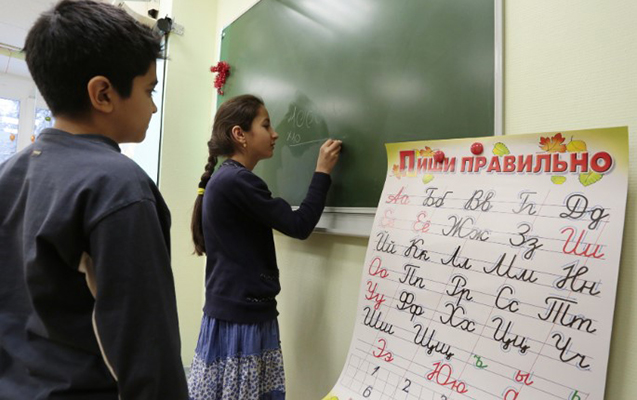 Пиши правильно
Аа Бб Вв Гг Дд
Ее Ёё Жж Зз Ии
Йй Кк Лл Мм Нн
Оо Пп Рр Сс Тт
Уу Фф Хх Цц Чч
Шш Щщ ъ ы ь
Ээ Юю
1 2
6